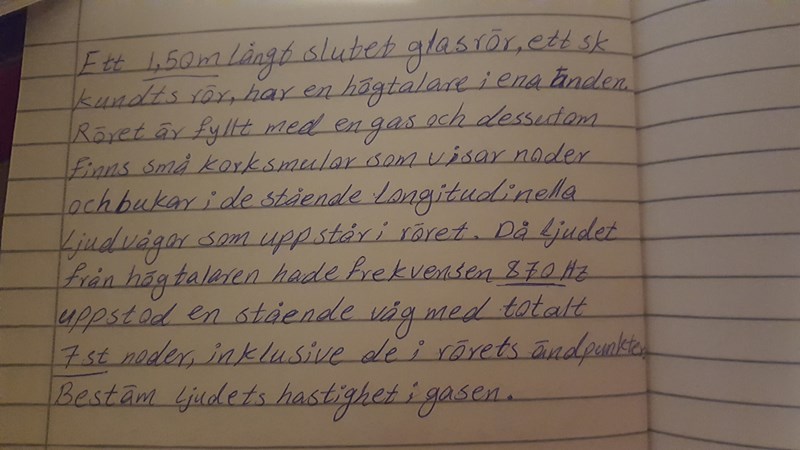 Ett 1,50m långt slutet glasrör, ett sk
kundts rör, har en högtalare i ena änden.
Röret är fyllt med en gas och dessutom
finns små korksmulor som visar noder
och bukar i de stående longitudinella
ljudvågor som uppstår i röret. Då ljudet
från högtalaren hade frekvensen 870 Hz
uppstod en stående våg med totalt
7 st noder, inklusive de i rörets ändpunkter.
Bestäm ljudets hastighet i gasen.